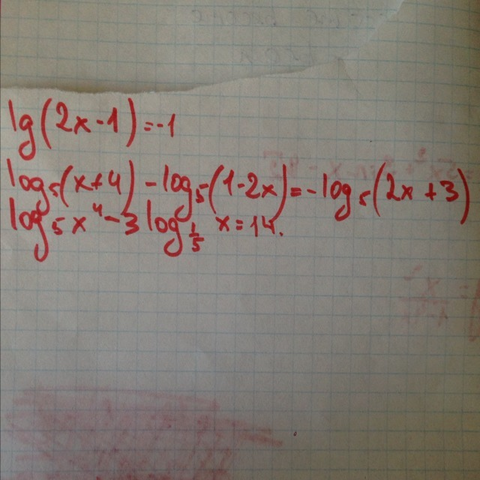 lg(2x-1)=-1
log₅(x+4)-log₅(1-2x)=-log₅(2x+3)
log₅x⁴-3log_{1/5} x=14.